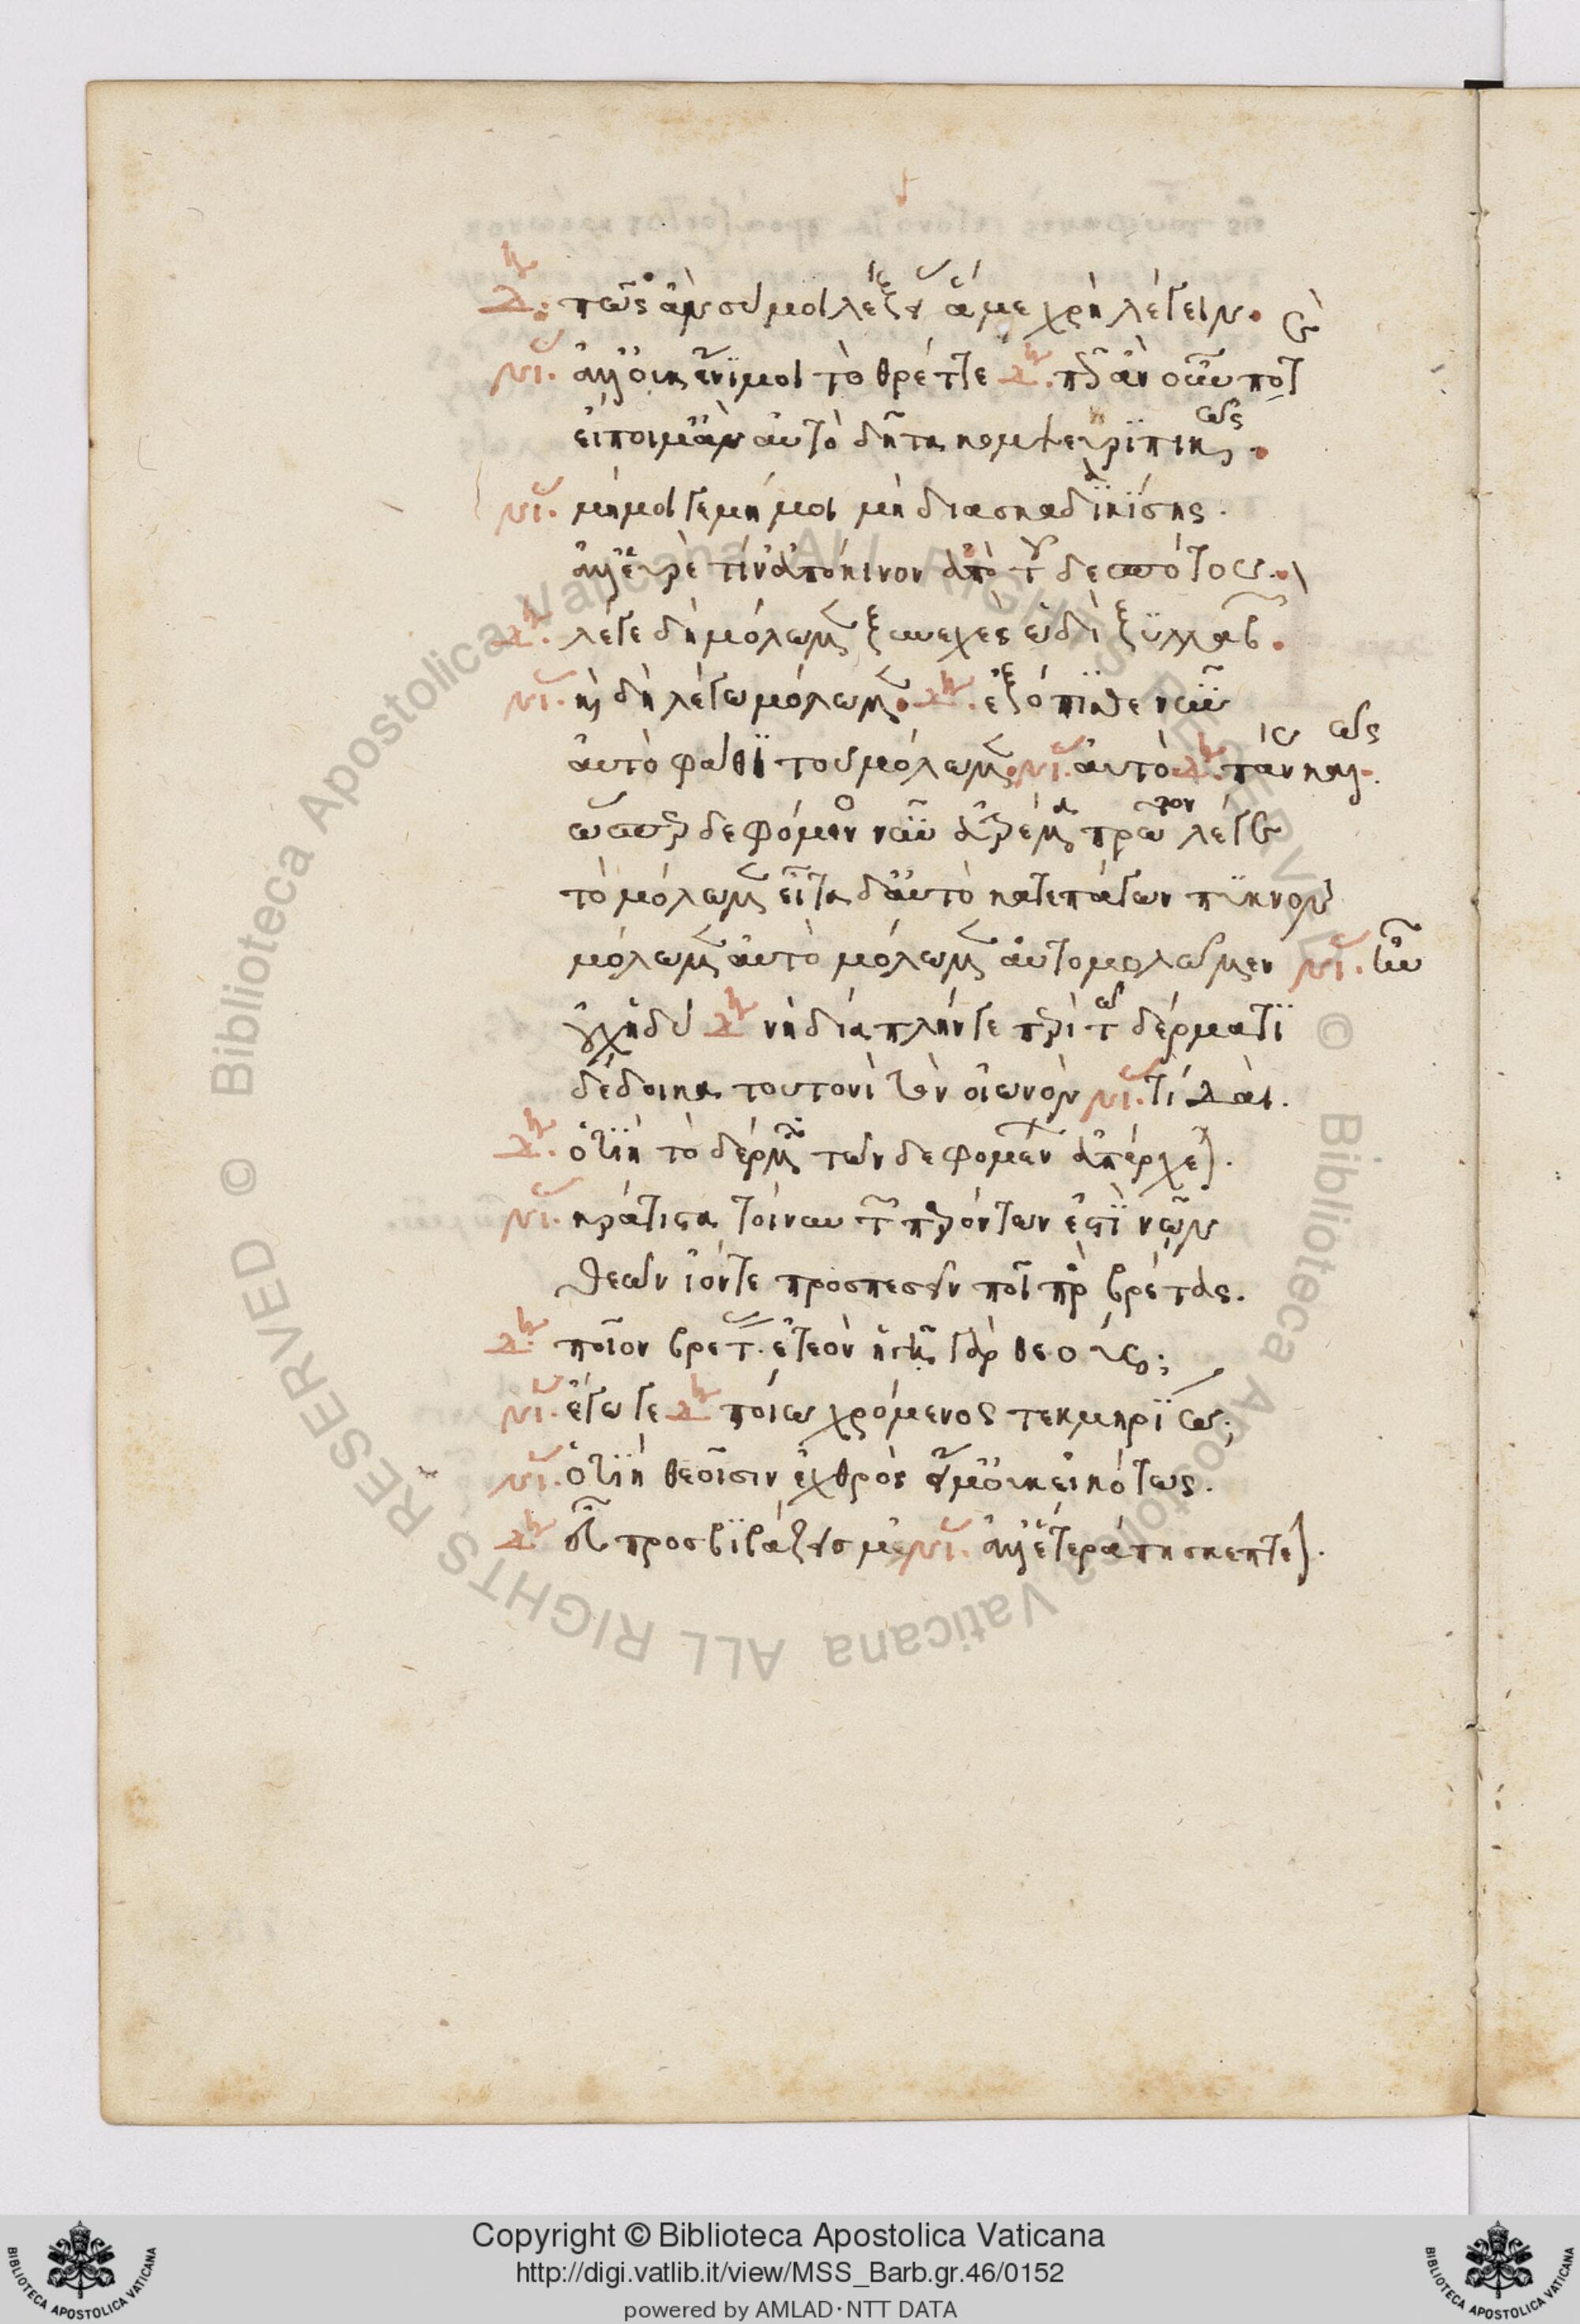 δη. πῶς ἂν σύ μοι λέξειας ἅ με χρὴ λέγειν.
νι. ἀλλ' οὐκ ἔνι μοι τὸ θρέττε δη. πῶς ἂν οὖν ποτ
εἴποιμ' ἂν αὐτὸ δῆτα κομψευριπικῶς.
νι. μή μοι γε μή μοι μὴ διασκανδικίσης.
ἀλλ' εὑρέ τιν' ἀπόκινον ἀπὸ τοῦ δεσπότου.
δη. λέγε δὴ μόλωμεν ξυνεχὲς ὡδὶ ξυλλαβών.
νι. καὶ δὴ λέγω μόλωμεν. δη. ἐξόπιθε νῦν
αὐτὸ φάθι τοῦ μόλωμεν. νι. αὐτό. δη. πάνυ καλῶς.
ὥσπερ δεφόμενος νῦν ἀτρέμα πρῶτον λέγε
τὸ μόλωμεν εἶτα δ' αὐτὸ κατεπάγων πυκνόν
μόλωμεν αὐτὸ μόλωμεν αὐτομολῶμεν νι. ἦν
οὐχ ἡδύ δη. νὴ δία πλήν γε περὶ τῷ δέρματι
δέδοικα τουτονὶ τὸν οἰωνόν νι. τί δαί.
δη. ὁτιὴ τὸ δέρμα τῶν δεφομένων ἀπέρχεται.
νι. κράτιστα τοίνυν τῶν παρόντων ἐστὶ νῶν
θεῶν ἰόντε προσπεσεῖν που πρὸς βρέτας.
δη. ποῖον βρέτας. ἐτεὸν ἡγῇ γὰρ θεούς;
νι. ἔγωγε δη. ποίω χρόμενος τεκμηρίω;
νι. ὁτιὴ θεοῖσιν ἐχθρός εἰμ' οὐκ εἰκότως.
δη. εὖ προσβιβάζεις με νι. ἀλλ' ἑτέρα πη σκεπτέον.
Copyright © Biblioteca Apostolica Vaticana
http://digi.vatlib.it/view/MSS_Barb.gr.46/0152
powered by AMLAD·NTT DATA